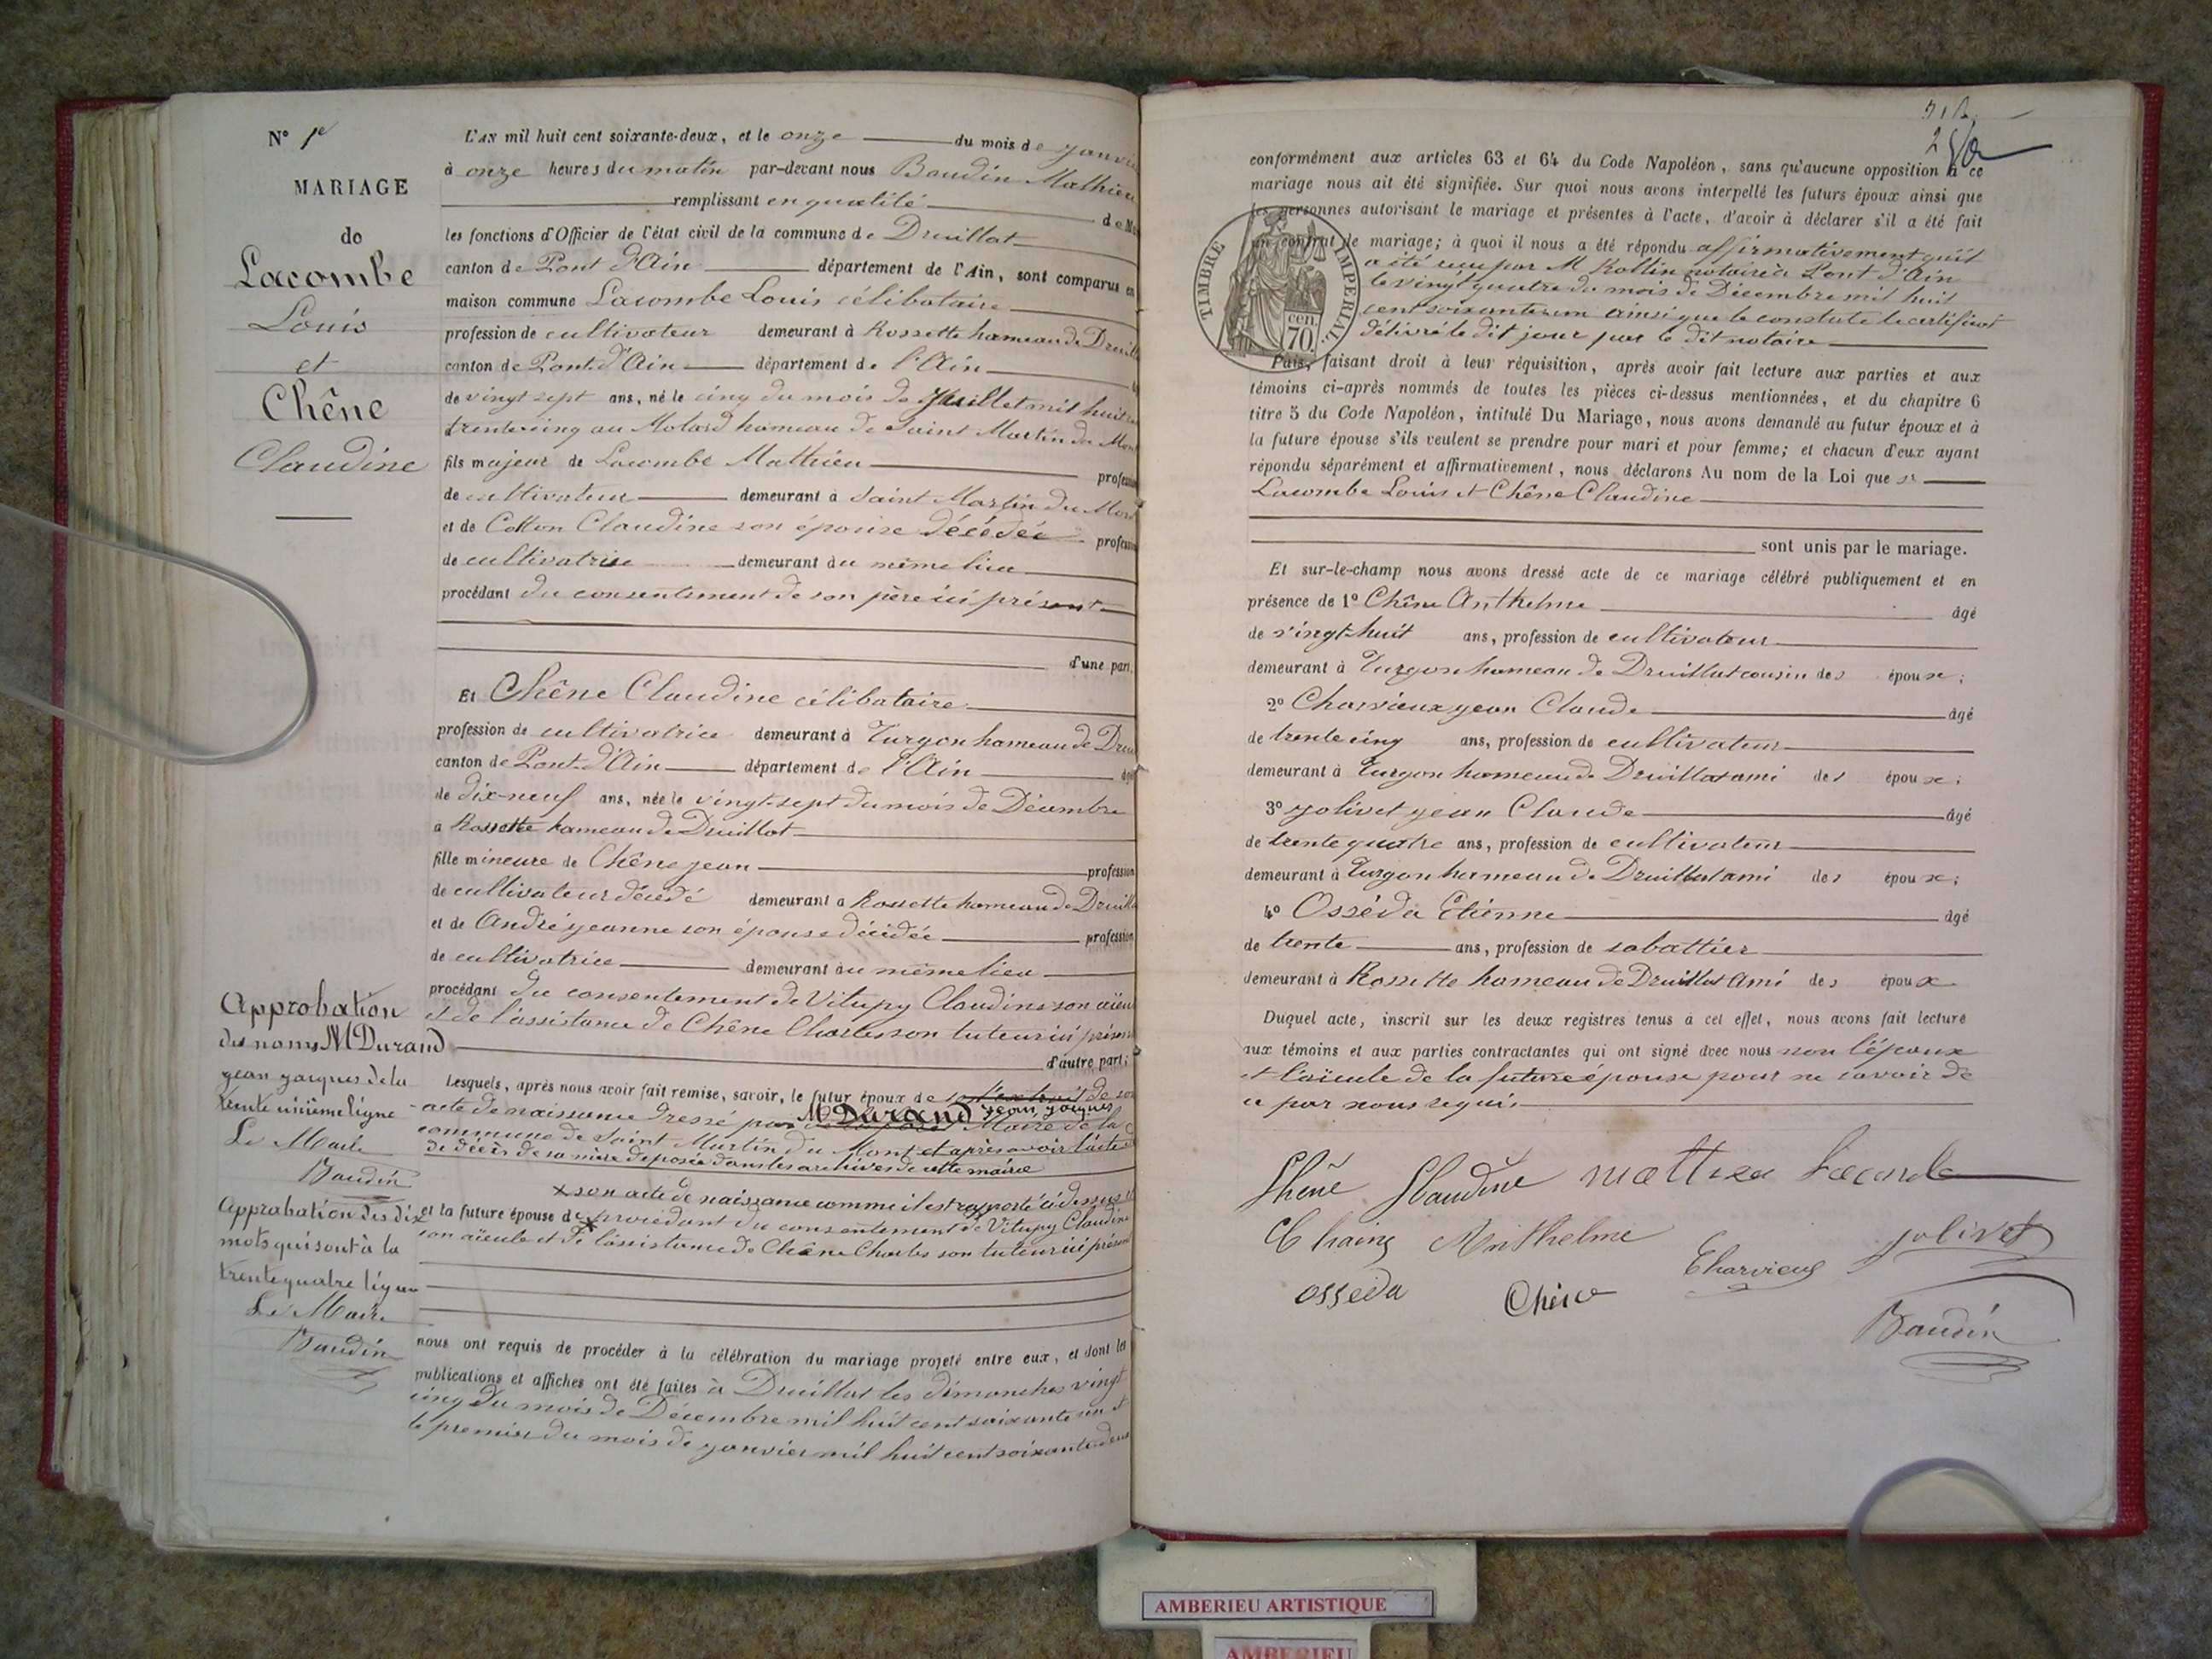 N° 1er
MARIAGE
de
Lacombe
Louis
et
Chêne
Claudine
L'AN mil huit cent soixante-deux, et le onze du mois de janvier
à onze heures du matin par-devant nous Baudin Mathieu
remplissant en qualité de M
les fonctions d'Officier de l'état civil de la commune de Druillat
canton de Pont d'Ain département de l'Ain, sont comparus en
maison commune Lacombe Louis célibataire
profession de cultivateur demeurant à Rossette hameau de Druill
canton de Pont-d'Ain département de l'Ain
de vingt sept ans, né le cinq du mois de Juillet mil huit
trente cinq au Molard hameau de Saint Martin du Mon
fils majeur de Lacombe Mathieu profession
de cultivateur demeurant à Saint Martin du Mon
et de Cotton Claudine son épouse décédée profession
de cultivatrise demeurant au même lieu
procédant du consentement de son père ici présent
d'une part.
Et Chêne Claudine célibataire
profession de cultivatrice demeurant à Turgon hameau de Dru
canton de Pont-d'Ain département de l'Ain âgé
de dix-neuf ans, née le vingt-sept du mois de Décembre
à Rossette hameau de Druillat
fille mineure de Chêne jean profession
de cultivateur décédé demeurant à Rossette hameau de Druill
et de André jeanne son épouse décédée profession
de cultivatrice demeurant au même lieu
procédant du consentement de Vitupy Claudine son aïeule
et de l'assistance de Chêne Charles son tuteur ici présent
d'autre part;
Approbation
des noms M Durand
jean jacques de la
trente unième ligne
Le Maire
Baudin
Lesquels, après nous avoir fait remise, savoir, le futur époux de de son
acte de naissance dressé par M Durand jean jacques Maire de la
commune de Saint Martin du Mont et après avoir l'acte
de décès de sa mère déposée dans les archives de cette mairie
x son acte de naissance comme il est rapporté ci dessus et
et la future épouse de x procédant du consentement de Vitupy Claudine
son aïeule et de l'assistance de Chêne Charles son tuteur ici présent
Approbation des dix
mots qui sont à la
trente quatre ligne
Le Maire
Baudin
nous ont requis de procéder à la célébration du mariage projeté entre eux, et dont les
publications et affiches ont été faites à Druillat les dimanches vingt
cinq du mois de Décembre mil huit cent soixante un et
le premier du mois de janvier mil huit cent soixante deux
2
conformément aux articles 63 et 64 du Code Napoléon, sans qu'aucune opposition à ce
mariage nous ait été signifiée. Sur quoi nous avons interpellé les futurs époux ainsi que
les personnes autorisant le mariage et présentes à l'acte, d'avoir à déclarer s'il a été fait
un contrat de mariage; à quoi il nous a été répondu affirmativement qu'il
a été reçu par M Rollin notaire à Pont d'Ain
le vingt quatre du mois de Décembre mil huit
cent soixante un ainsi que le constate le certificat
délivré le dit jour par le dit notaire
TIMBRE IMPERIAL
70 cen.
Puis, faisant droit à leur réquisition, après avoir fait lecture aux parties et aux
témoins ci-après nommés de toutes les pièces ci-dessus mentionnées, et du chapitre 6
titre 5 du Code Napoléon, intitulé Du Mariage, nous avons demandé au futur époux et à
la future épouse s'ils veulent se prendre pour mari et pour femme; et chacun d'eux ayant
répondu séparément et affirmativement, nous déclarons Au nom de la Loi que
Lacombe Louis et Chêne Claudine
sont unis par le mariage.
Et sur-le-champ nous avons dressé acte de ce mariage célébré publiquement et en
présence de 1° Chêne Anthelme âgé
de vingt-huit ans, profession de cultivateur
demeurant à Turgon hameau de Druillat cousin des épouse;
2° Charvieux jean Claude âgé
de trente cinq ans, profession de cultivateur
demeurant à Turgon hameau de Druillat ami des époux;
3° jolivet jean Claude âgé
de trente quatre ans, profession de cultivateur
demeurant à Turgon hameau de Druillat ami des époux;
4° Osséda Etienne âgé
de trente ans, profession de sabattier
demeurant à Rossette hameau de Druillat Ami des époux
Duquel acte, inscrit sur les deux registres tenus à cet effet, nous avons fait lecture
aux témoins et aux parties contractantes qui ont signé avec nous non l'époux
et l'aïeule de la future épouse pour ne savoir de
ce par nous requis
Chêne Claudine mathieu Lacombe
Chaine Anthelme Charvieux jolivet
osseda Chêne
Baudin
AMBERIEU ARTISTIQUE
AMBERIEU